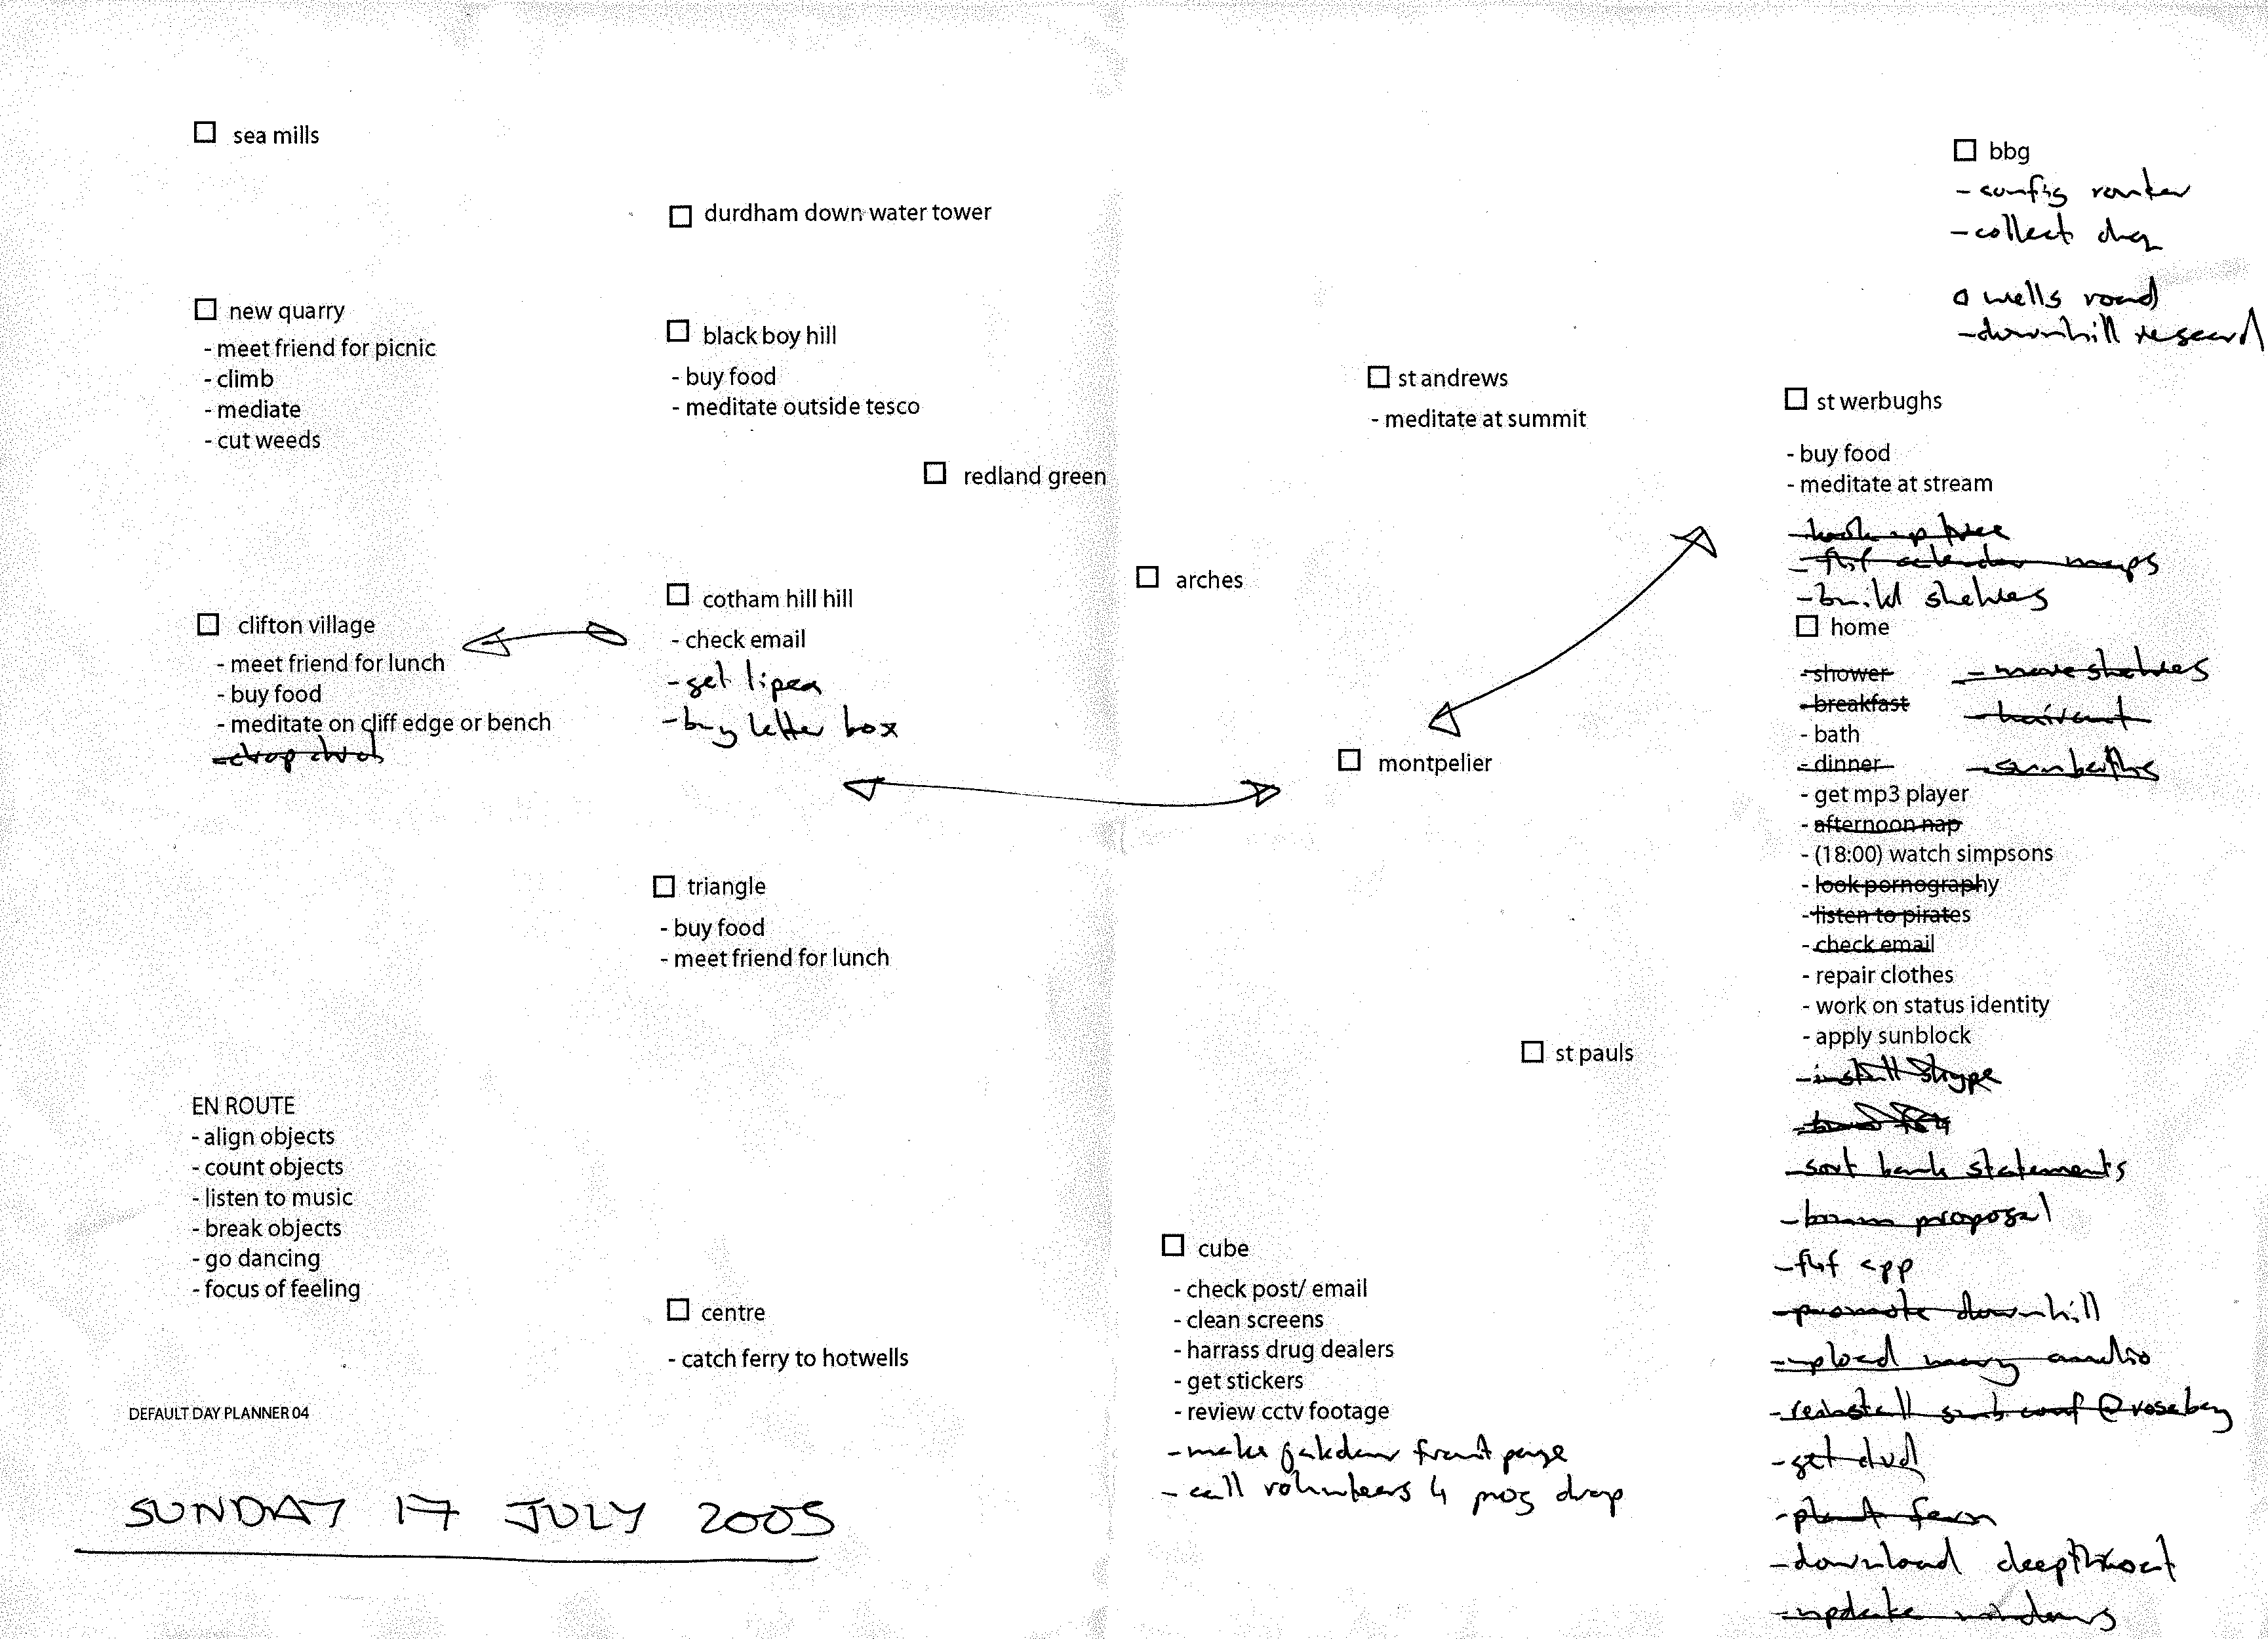 sea mills
durdham down water tower
new quarry
- meet friend for picnic
- climb
- mediate
- cut weeds
black boy hill
- buy food
- meditate outside tesco
redland green
clifton village
- meet friend for lunch
- buy food
- meditate on cliff edge or bench
- drop
cotham hill hill
- check email
- get
- buy letter box
triangle
- buy food
- meet friend for lunch
EN ROUTE
- align objects
- count objects
- listen to music
- break objects
- go dancing
- focus of feeling
centre
- catch ferry to hotwells
DEFAULT DAY PLANNER 04
SUNDAY 17 JULY 2005
st andrews
- meditate at summit
arches
montpelier
st pauls
cube
- check post/ email
- clean screens
- harrass drug dealers
- get stickers
- review cctv footage
- make front page
- call volunteers 4 prog drop
bbg
- config router
- collect cheq
wells road
- downhill research
st werbughs
- buy food
- meditate at stream
- hook up
- calendar maps
- build shelves
home
- shower
- breakfast
- bath
- dinner
- get mp3 player
- afternoon nap
- (18:00) watch simpsons
- look pornography
- listen to pirates
- check email
- repair clothes
- work on status identity
- apply sunblock
- move shelves
- haircut
- sunbathe
- install skype
- sort bank statements
- proposal
- app
- promote downhill
- upload many audio
- reinstall
- get dvd
- plant fern
- download deepthroat
- update windows